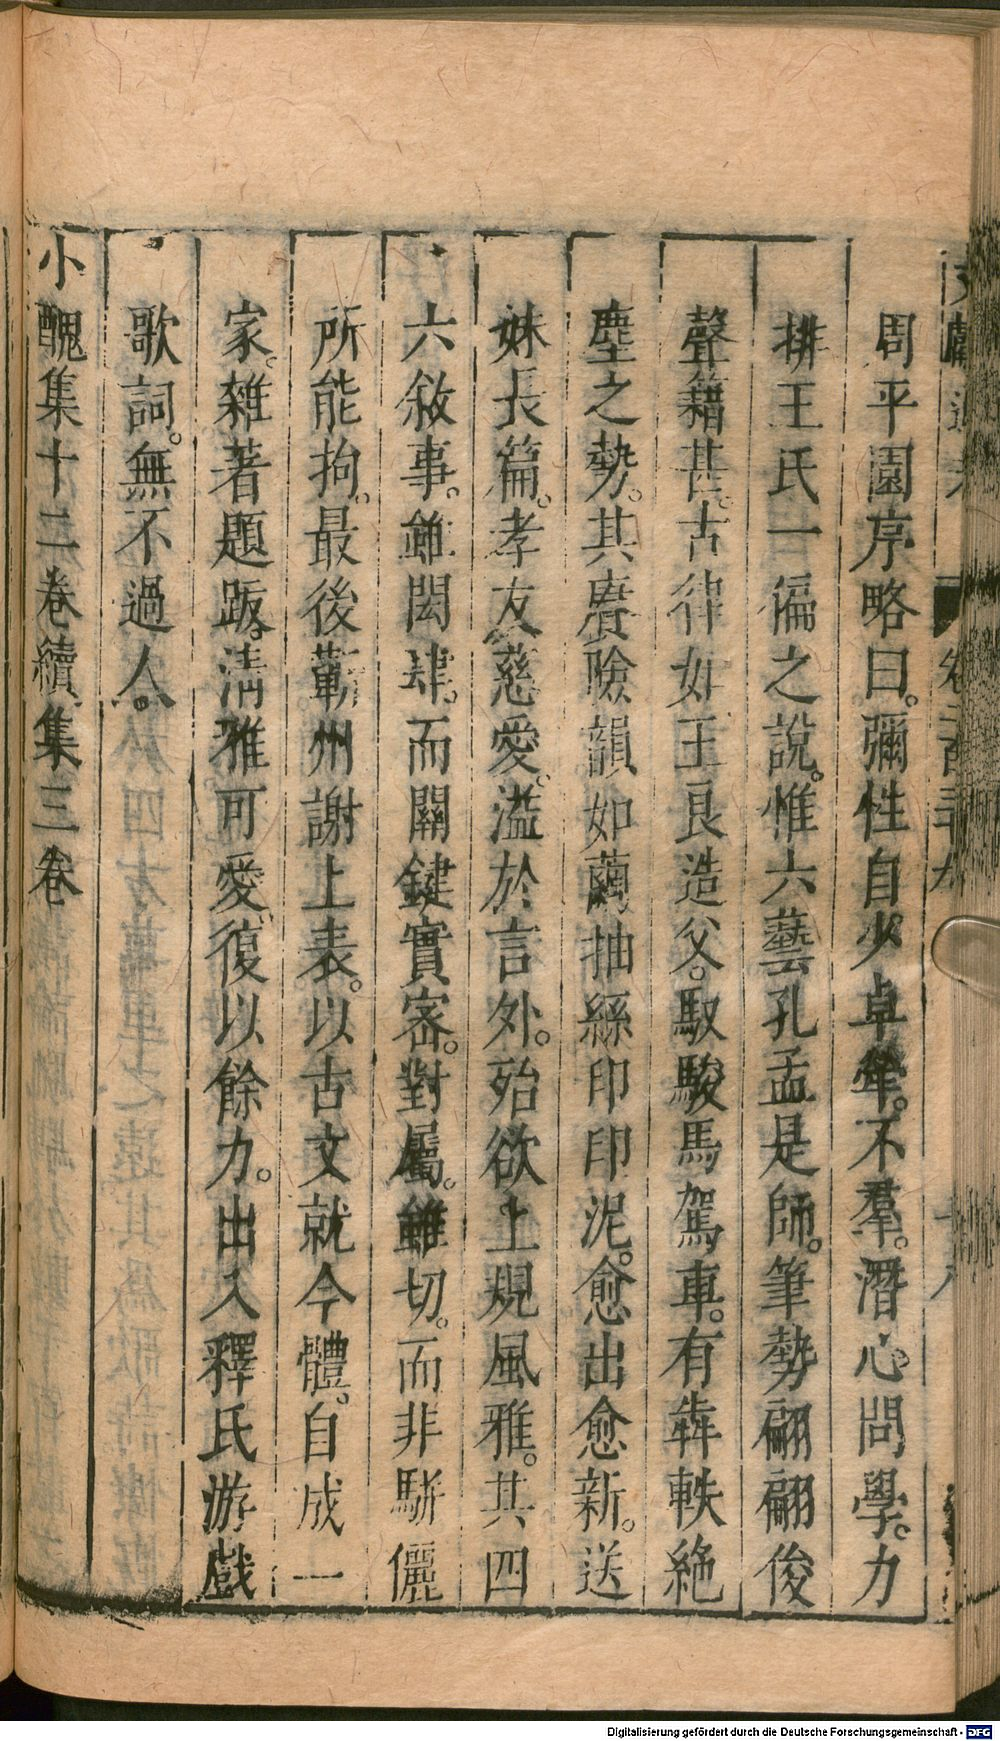 周平園序略曰。彌性自少卓犖。不羣。潛心問學。力
排王氏一偏之說。惟六藝孔孟是師。筆勢翩翩俊
聲籍甚。古律如王良造父。馭駿馬駕車。有犇軼絕
塵之勢。其賡險韻如繭抽絲印印泥。愈出愈新。送
妹長篇。孝友慈愛。溢於言外。殆欲上規風雅。其四
六敘事。雖閎肆。而關鍵實密。對屬。雖切。而非駢儷
所能拘。最後蘄州謝上表。以古文就今體。自成一
家。雜著題跋。淸雅可愛。復以餘力。出入釋氏游戲
歌詞。無不過人。
小醜集十二卷續集三卷
Digitalisierung gefördert durch die Deutsche Forschungsgemeinschaft - DFG